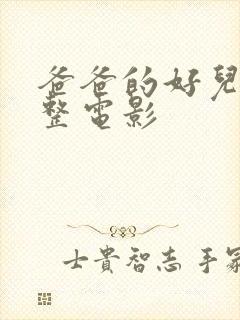 爸爸的好兒
整電影
士貴智志手冢